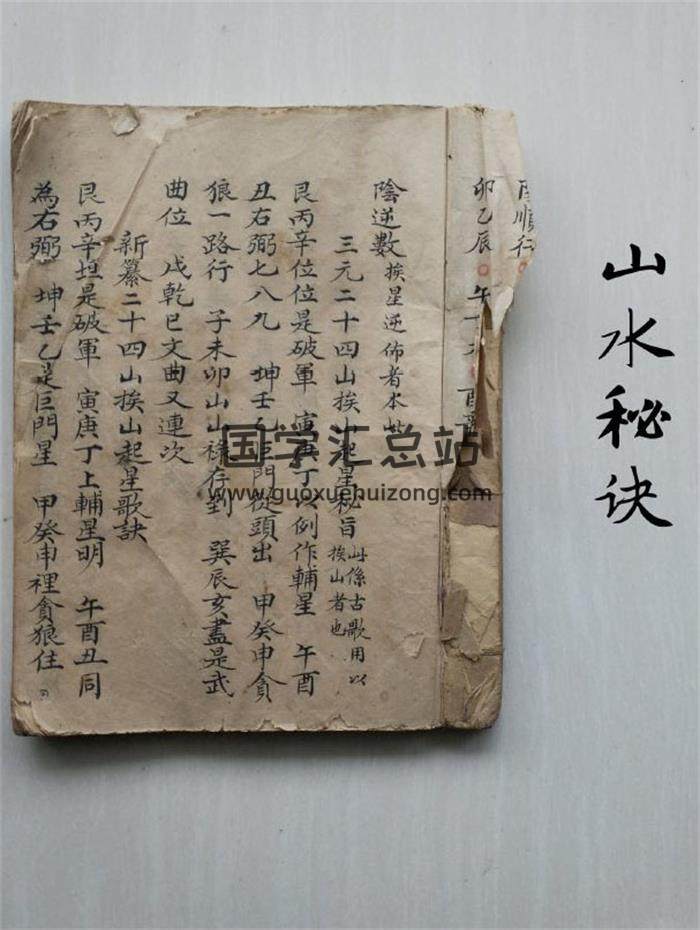 山水秘诀
順行
卯乙辰 午
陰逆数 挨星逆佈者本此
三元二十四山挨山起星秘旨 此係古歌用以
挨山者也
艮丙辛位位是破軍 寅庚丁 例作輔星 午酉
丑右弼七八九 坤壬乙巨門從頭出 甲癸申貪
狼一路行 子未卯山山祿存到 巽辰亥盡是武
曲位 戌乾巳文曲又連次
新纂二十四山挨山起星歌訣
艮丙辛垣是破軍 寅庚丁上輔星明 午酉丑同
為右弼 坤壬乙是巨門星 甲癸申裡貪狼住
国学汇总站
www.guoxuehuizong.com